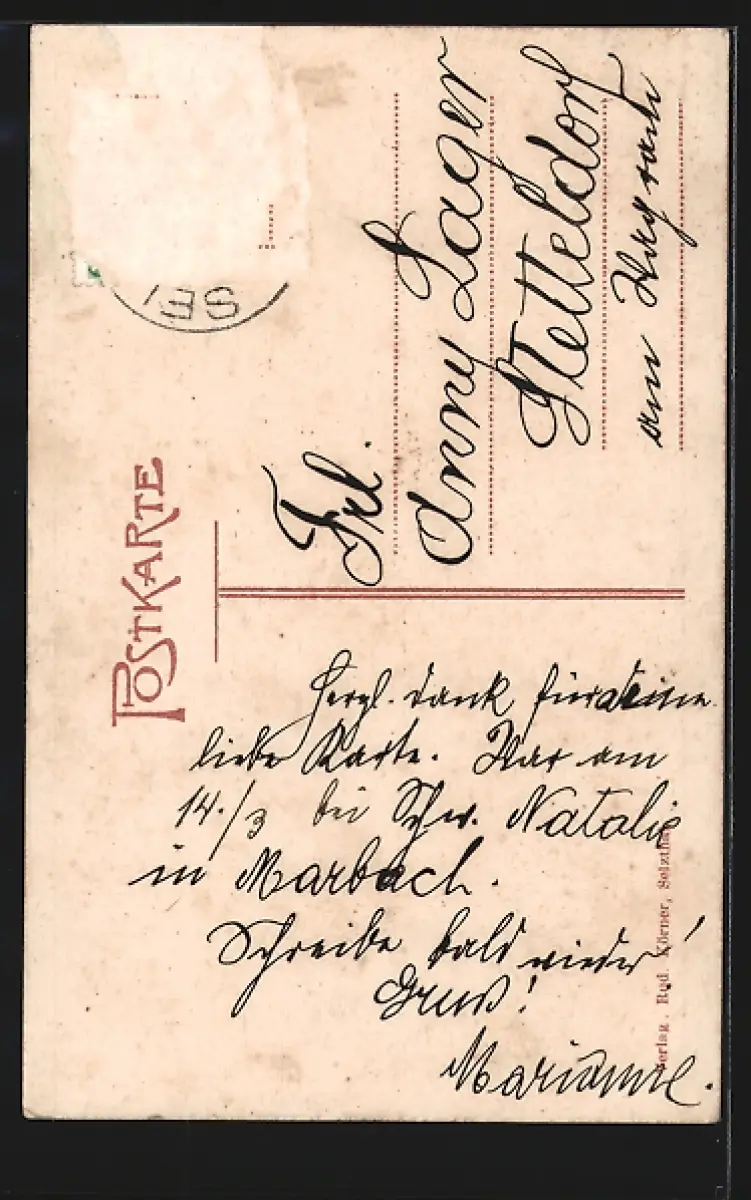 POSTKARTE
Frl.
Anny Lager
Stetteldorf
am Wagram
Herzl. Dank für deine
liebe Karte. War am
14./3 bei Schw. Natalie
in Marbach.
Schreibe bald wieder!
Gruß!
Marianne.
Verlag . Rud. Körner, Selzthal